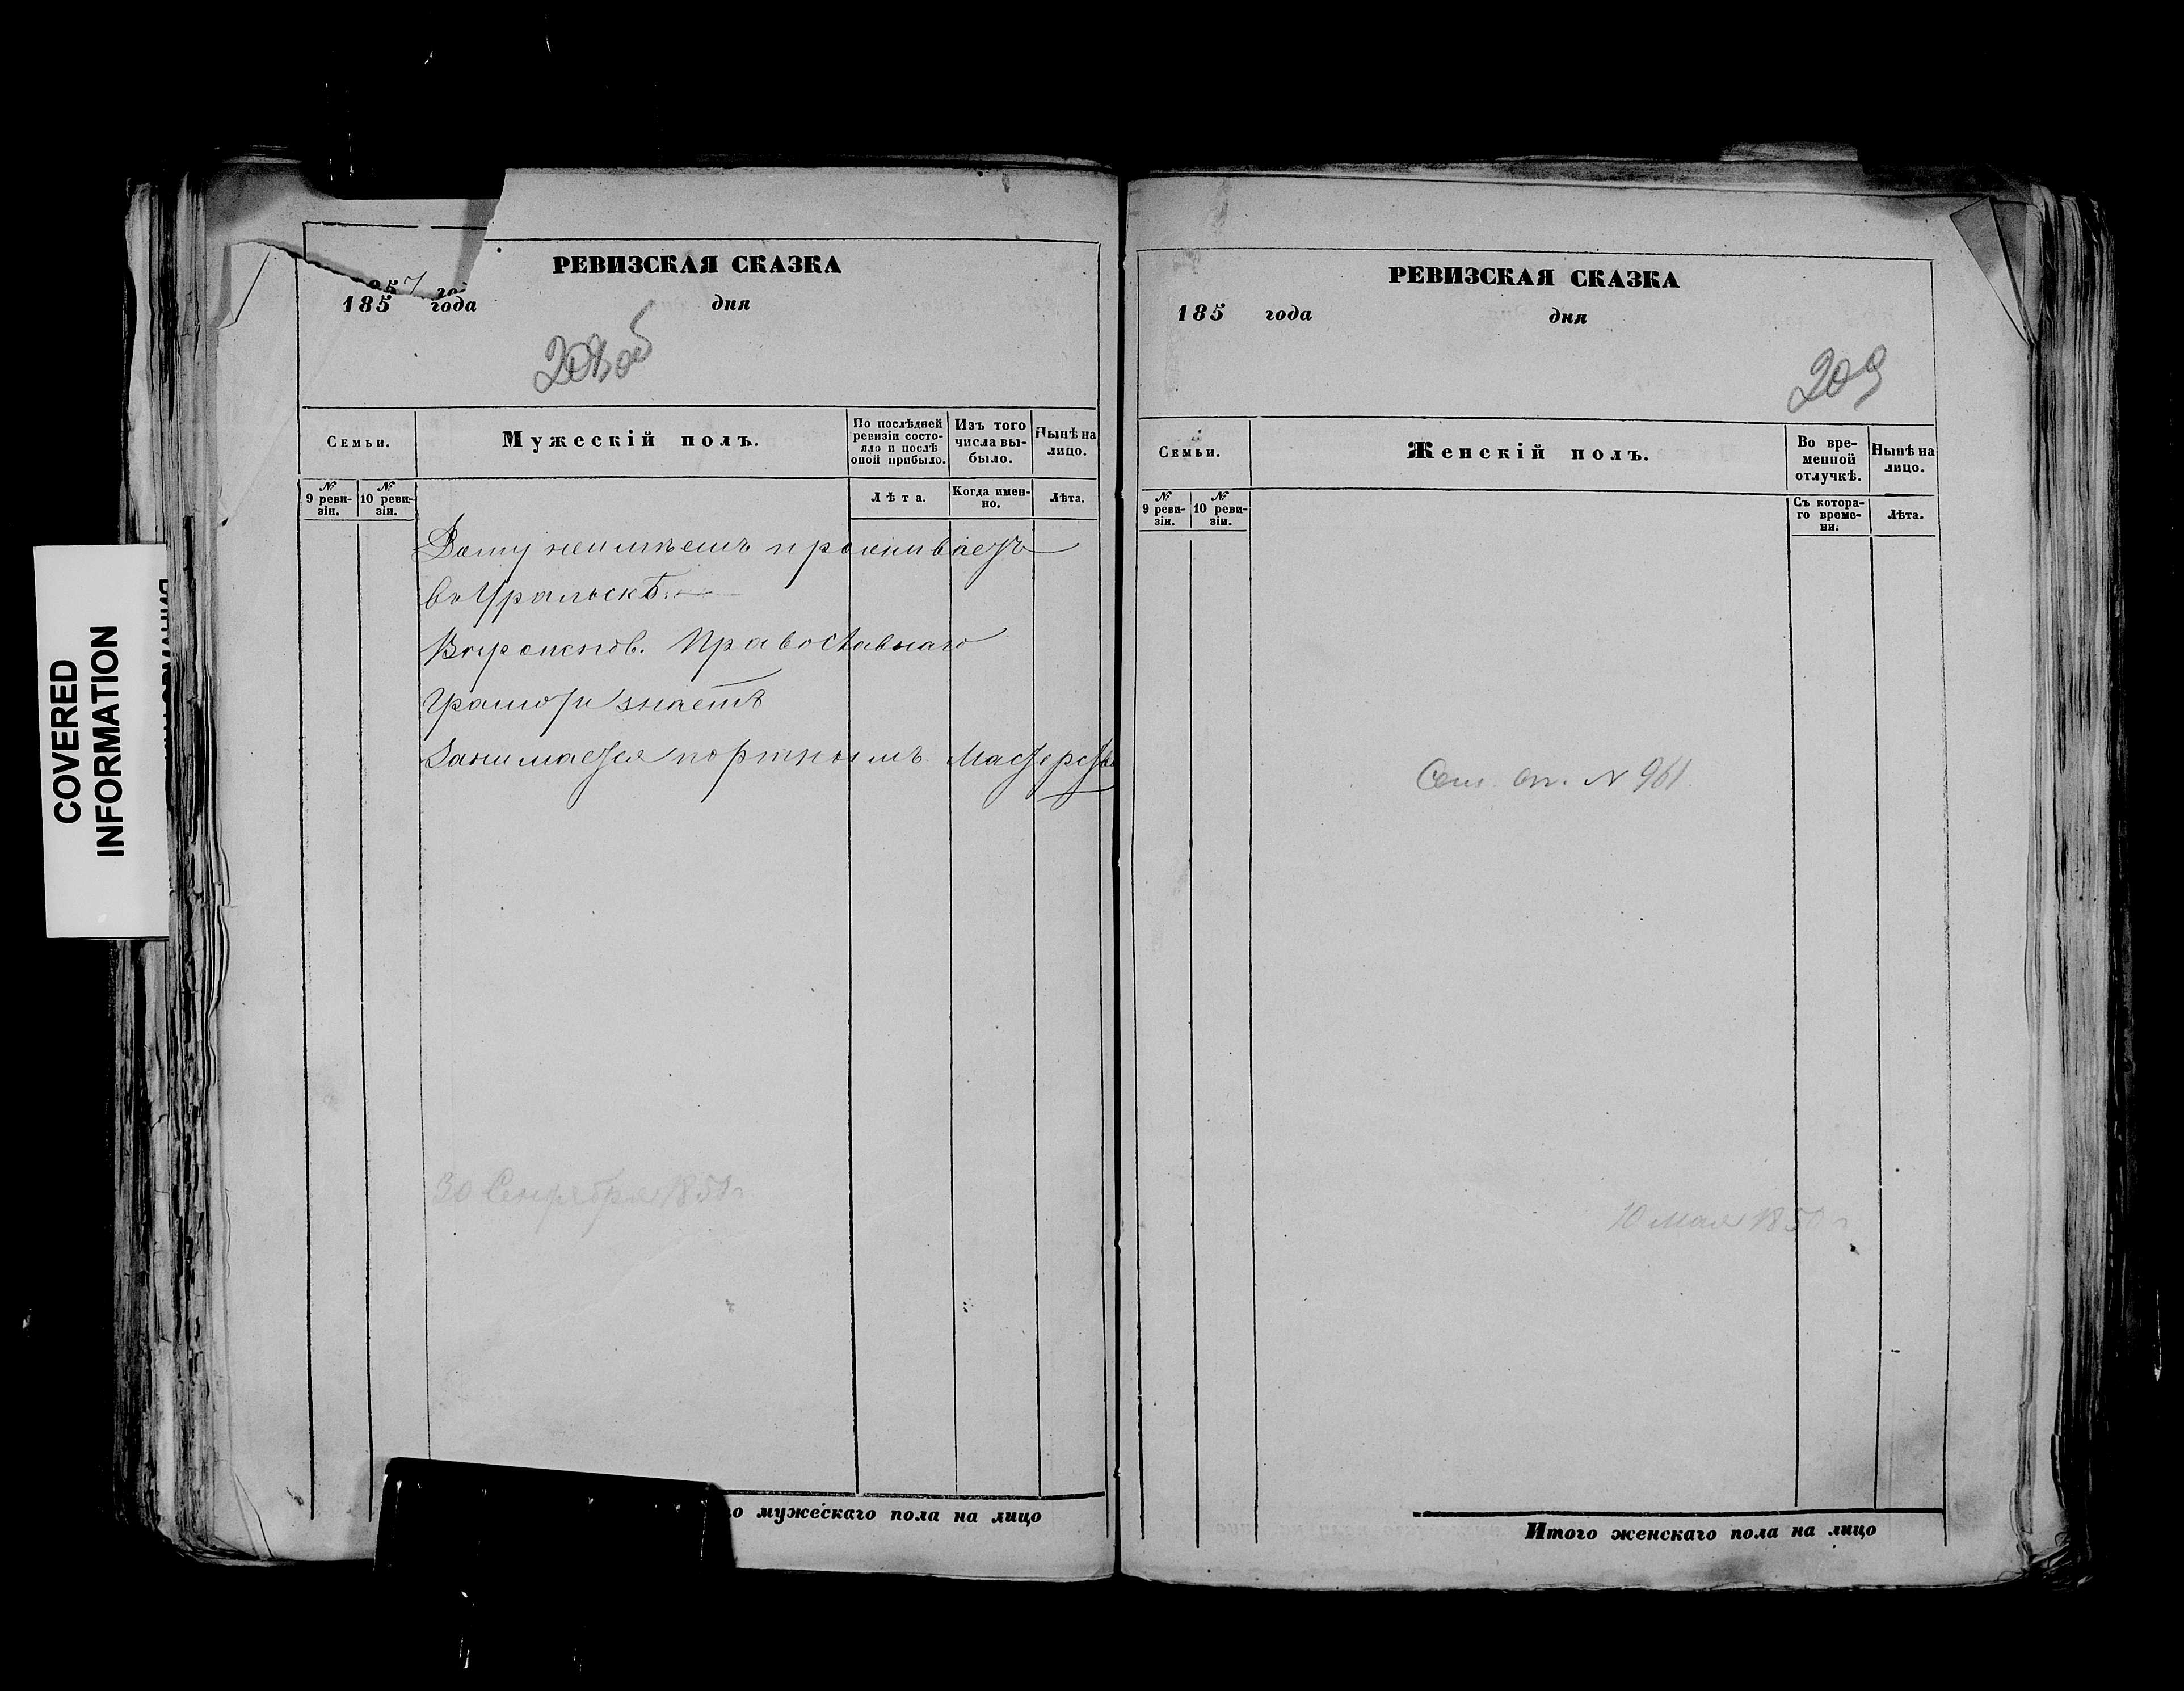 РЕВИЗСКАЯ СКАЗКА
185 года дня
208 об
Семьи.
Мужескій полъ.
По послѣдней ревизіи состо-
яло и послѣ
оной прибыло.
Изъ того
числа вы-
было.
Нынѣ на
лицо.
№
9 реви-
зіи.
№
10 реви-
зіи.
Лѣта.
Когда имен-
но.
Лѣта.
Дому неимѣетъ проживаетъ
въ Уральскѣ.
Вѣроисповѣд. Православнаго
Грамоту знаетъ
Занимается портнымъ Мастерство
30 Сентября 185
о мужескаго пола на лицо
РЕВИЗСКАЯ СКАЗКА
185 года дня
209
Семьи.
Женскій полъ.
Во вре-
менной
отлучкѣ.
Нынѣ на
лицо.
№
9 реви-
зіи.
№
10 реви-
зіи.
Съ котора-
го време-
ни.
Лѣта.
оп. N 961
10 Мая 1850 г
Итого женскаго пола на лицо
COVERED
INFORMATION